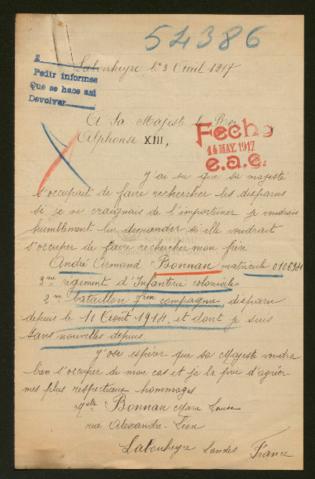 54386
Labouheyre le 3 Avril 1917
2
Pedir informes
Que se hace así
Devolver
A Sa Majesté le Roi
Alphonse XIII,
Fecha
14 MAY. 1917
e.a.c.
J'ai su que sa majesté
s'occupait de faire rechercher les disparus
si je ne craignais de l'importuner je voudrais
humblement lui demander si elle voudrait
s'occuper de faire rechercher mon frère
André Armand Bonnan matricule
3me régiment d'Infanterie coloniale
3me bataillon compagnie disparu
depuis le Août 1914 et dont je suis
sans nouvelles depuis
J'ose espérer que sa Majesté voudra
bien s'occuper de mon cas et je la prie d'agréer
mes plus respectueux hommages
Mlle Bonnan Marie Louise
rue Alexandre Léon
Labouheyre Landes France